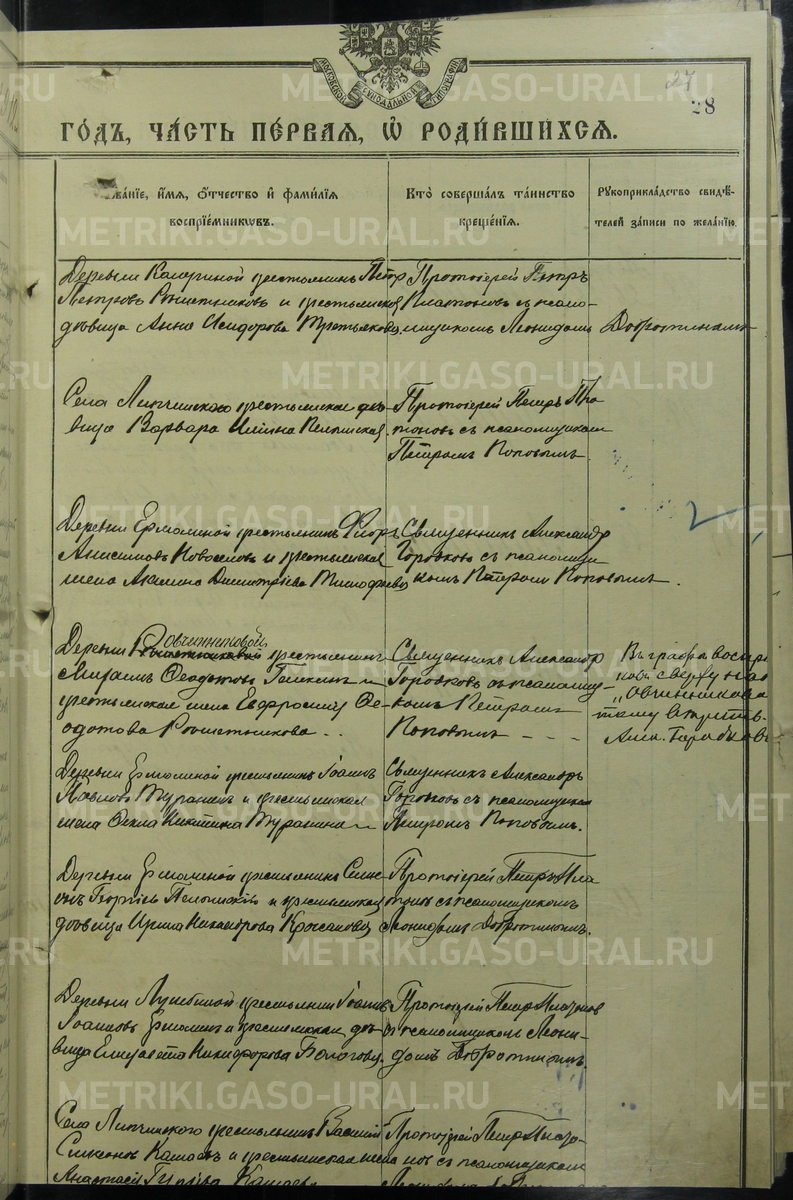 METRIKI.GASO-URAL.RU
27
28
МОСКОВСКОЙ СѴНОДАЛЬНОЙ ТИПОГРАФІИ
ГОДЪ, ЧАСТЬ ПЕРВАЯ, Ѿ РОДИВШИХСЯ.
Званіе, имя, отчество и фамилія
воспріемниковъ.
Кто совершалъ таинство
крещенія.
Рукоприкладство свидѣ-
телей записи по желанію.
Деревни крестьянинъ Петръ
Петровъ Рѣшетниковъ и крестьянская
дѣвица Анна Исидорова Третьякова.
Протоіерей Петръ
Платоновъ съ псало-
мщикомъ Леонидомъ
Добротинымъ
Села Липчинскаго крестьянская дѣ-
вица Варвара Пелымская
Протоіерей Петръ Пла
тоновъ съ псаломщикомъ
Петромъ Поповымъ
Деревни Ермолиной крестьянинъ
Анисимовъ Новоселовъ и крестьянская
жена Акилина Димитріева
Священникъ Александръ
Горбковъ съ псаломщи
комъ Петромъ Поповымъ.
Деревни Овчинниковой крестьянинъ
Ѳеодотовъ и
крестьянская жена Евфросинія Ѳе-
одотова Рѣшетникова
Священникъ Александръ
Горбковъ съ псаломщи-
комъ Петромъ
Поповымъ
Въ графѣ воспрі
сверху
"Овчинникова
Деревни Ермолиной крестьянинъ Іоаннъ
Павловъ Туранинъ и крестьянская
жена Ѳекла Никитина Туранина
Священникъ Александръ
Горбковъ съ псаломщикомъ
Петромъ Поповымъ.
Деревни Ермолиной крестьянинъ Симе
онъ Георгіевъ Пелымскій и крестьянская
дѣвица Ирина Никандрова
Протоіерей Петръ Пла
тоновъ съ псаломщикомъ
Леонидомъ Добротинымъ.
Деревни крестьянинъ Іоаннъ
Іоанновъ Ермолинъ и крестьянская дѣ-
вица Елисавета Никифорова
Протоіерей Петръ Платоновъ
съ псаломщикомъ Леони-
домъ Добротинымъ.
Села Липчинскаго крестьянинъ Василій
Симеоновъ Кашаевъ и крестьянская жена
Анастасія Кашаева
Протоіерей Петръ Плато-
новъ съ псаломщикомъ